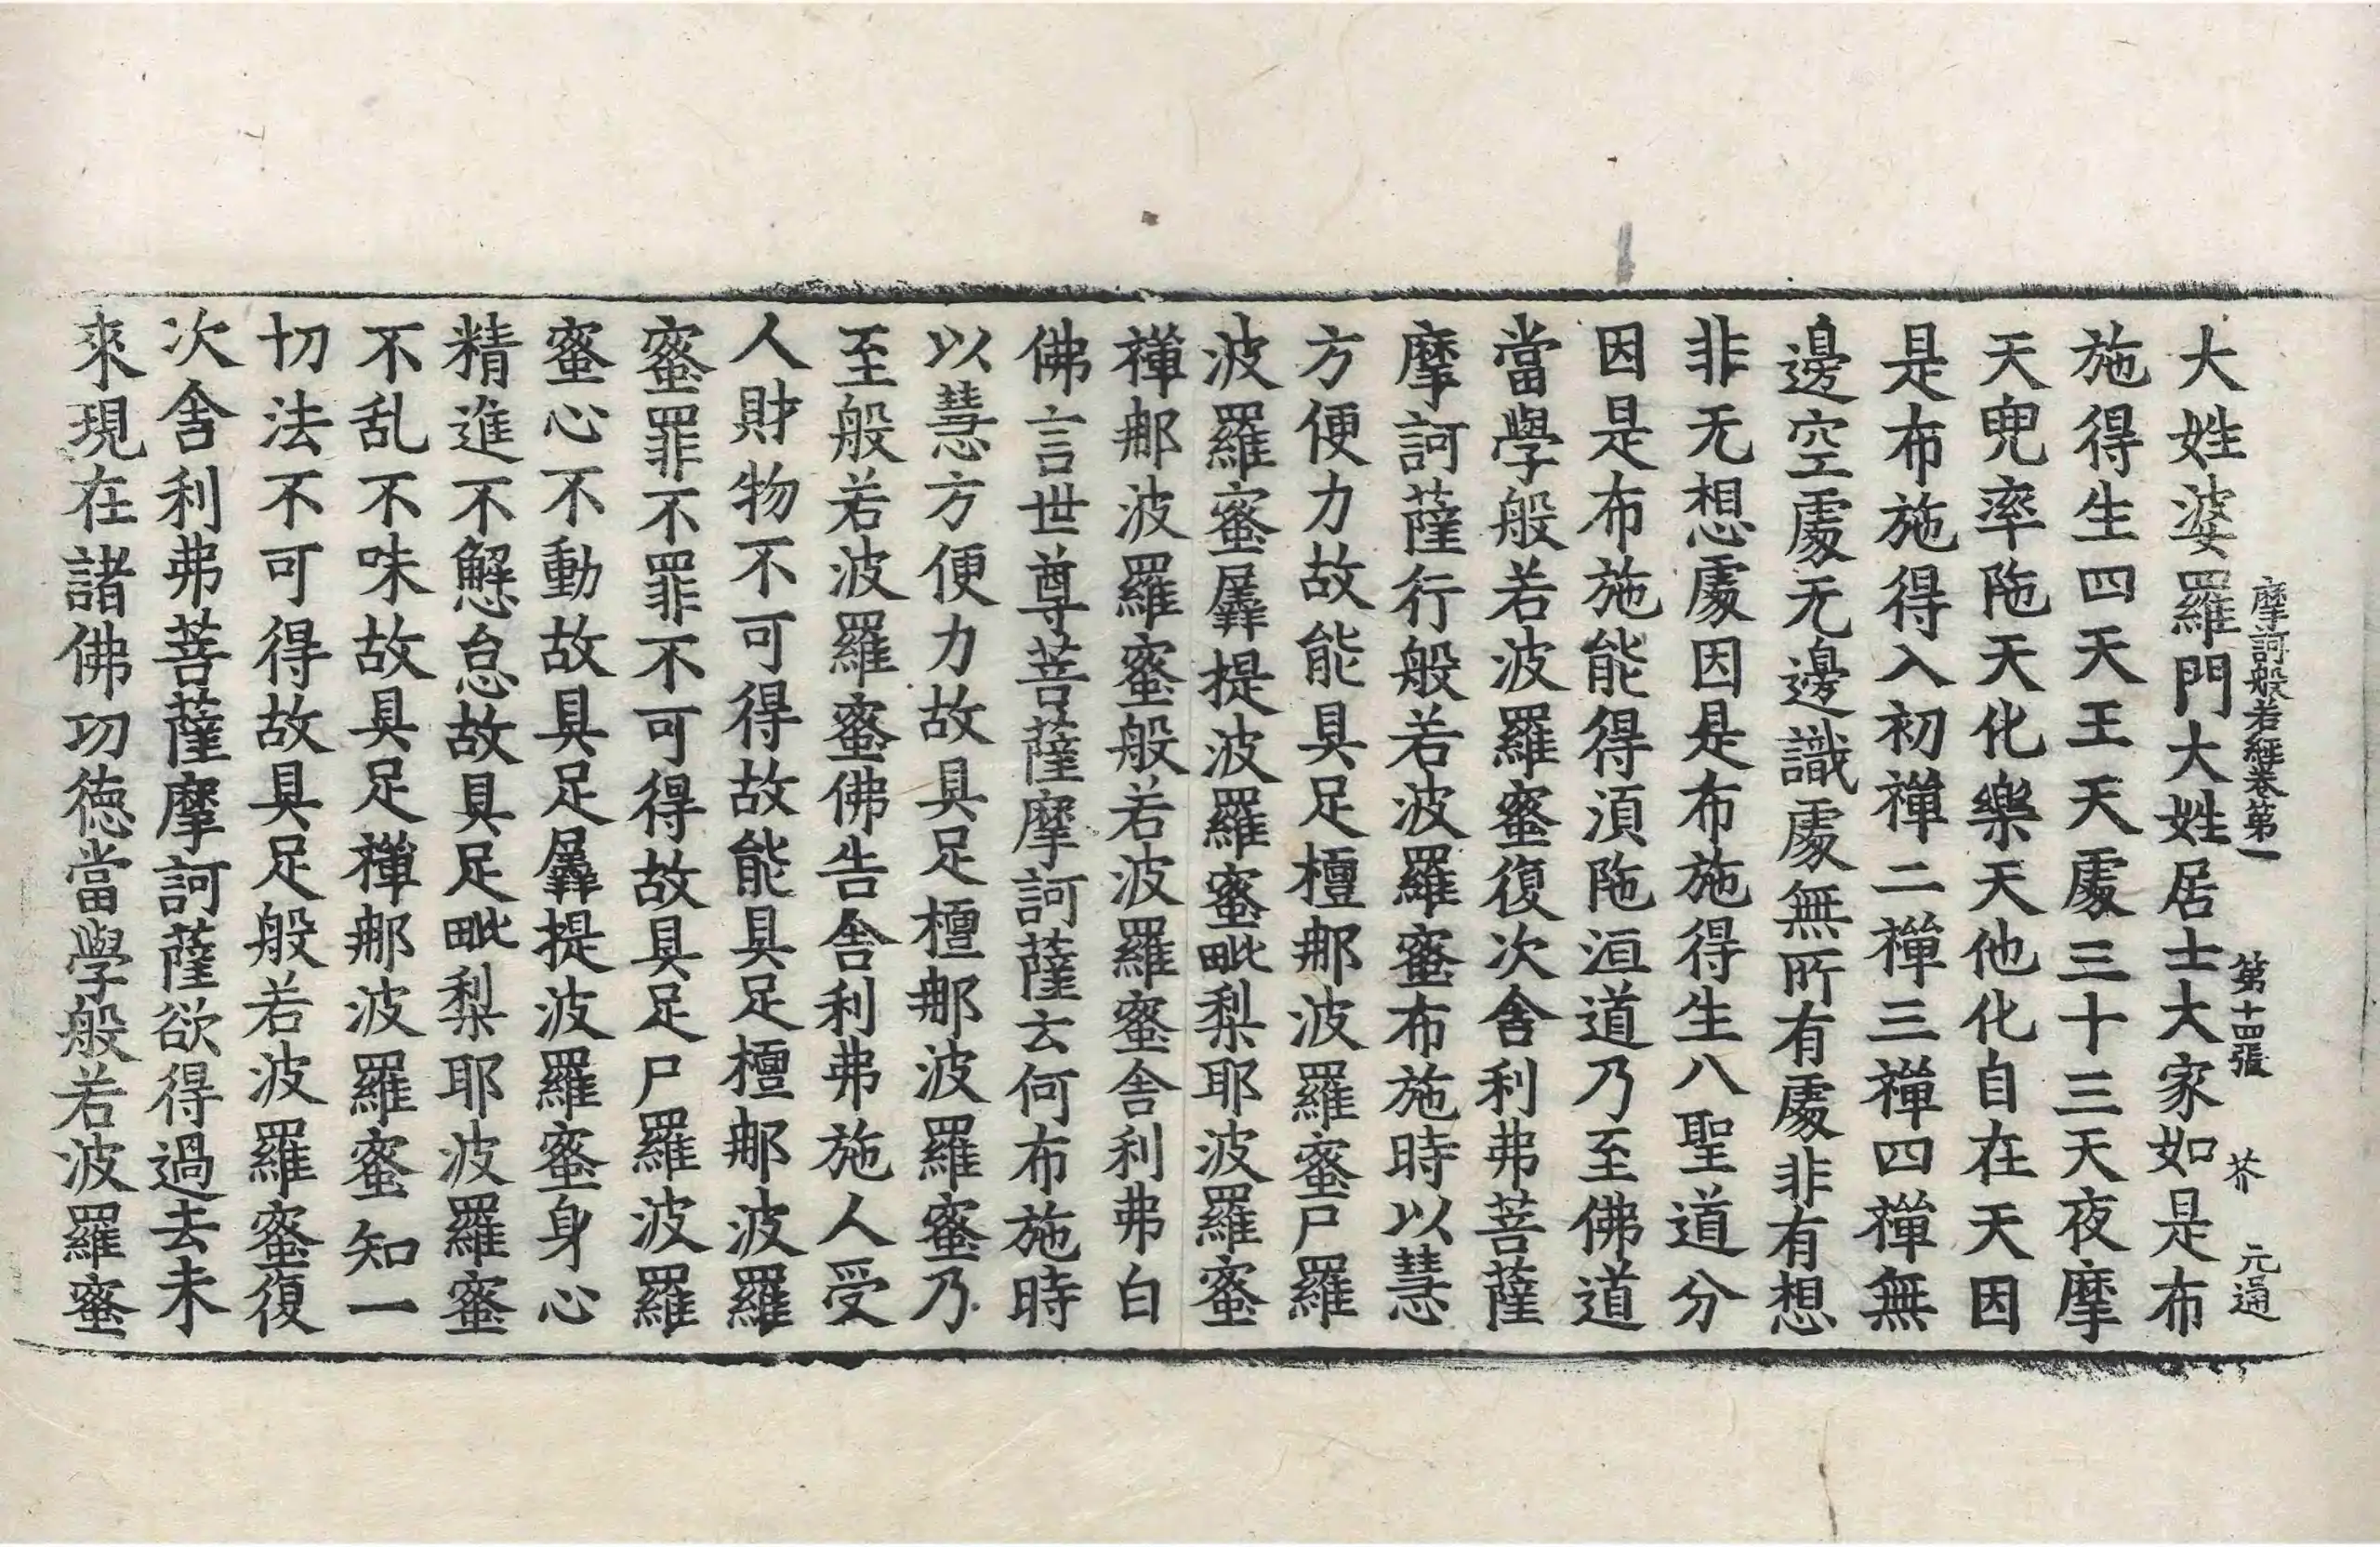 摩訶般若經卷第一 第十四張 芥 元通
大姓婆羅門大姓居士大家如是布
施得生四天王天處三十三天夜摩
天兜率陁天化樂天他化自在天因
是布施得入初禪二禪三禪四禪無
邊空處无邊識處無所有處非有想
非无想處因是布施得生八聖道分
因是布施能得湏陁洹道乃至佛道
當學般若波羅蜜復次舍利弗菩薩
摩訶薩行般若波羅蜜布施時以慧
方便力故能具足檀那波羅蜜尸羅
波羅蜜羼提波羅蜜毗梨耶波羅蜜
禪那波羅蜜般若波羅蜜舍利弗白
佛言世尊菩薩摩訶薩云何布施時
以慧方便力故具足檀那波羅蜜乃
至般若波羅蜜佛告舍利弗施人受
人財物不可得故能具足檀那波羅
蜜罪不罪不可得故具足尸羅波羅
蜜心不動故具足羼提波羅蜜身心
精進不懈怠故具足毗梨耶波羅蜜
不乱不味故具足禪那波羅蜜知一
切法不可得故具足般若波羅蜜復
次舍利弗菩薩摩訶薩欲得過去未
來現在諸佛功德當學般若波羅蜜